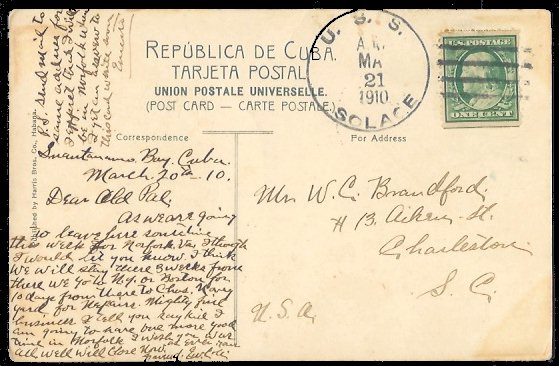 P.S. send mail to
same address for
I expect that I will
be in Norfolk when
REPÚBLICA DE CUBA.
TARJETA POSTAL
UNION POSTALE UNIVERSELLE.
(POST CARD — CARTE POSTALE.)
U. S. S.
A.M.
MA
21
1910
SOLACE
U.S. POSTAGE
ONE CENT
Published by Harris Bros. Co., Habana.
Correspondence
For Address
Guantanamo Bay, Cuba.
March 20th - 10.
Dear Old Pal,
As we are going
to leave here sometime
this week for Norfolk Va. I though
I would let you know. I think
we will stay there 3 weeks from
there we go to N.y. or Boston for
10 days from there to Chas. Navy
yard for repairs. Mighty fine
business I tell you Kay kid I
am going to have one more good
time in Norfolk I wish you was
All well will close now as ever your
friend
Mr W. C. Brandford,
# 13. Aiken. St.
Charleston
S. C.
U.S.A.